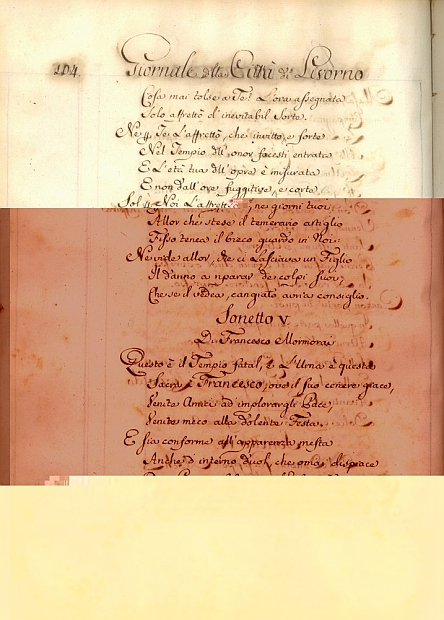 104. Giornale della Città di Livorno
Cosa mai tolse a Te? L'ora assegnata
Solo affrettò d'inevitabil sorte.
Ne p Te L'affrettò, che invitto, e forte
Nel Tempio dell'onor facesti entrata
E L'età tua dall'opre è misurata
E non dall'ore fuggitive, e corte
Sol p Noi L'affrettò, nei giorni tuoi
Allor che stese il temerario artiglio
Fisso tenea il bieco guardo in Noi:
Ne vide allor, che ci Lasciava un Figlio
Il danno a riparar de colpi suoi,
Che se il vedea, cangiato avria consiglio.
Sonetto V.
Di Francesco Mormorai
Questo è il Tempio fatal, e L'Urna è questa
Sacra a Francesco, ove il suo cenere giace,
Venite Amici ad implorargli Pace,
Venite meco alla dolente Festa.
E sia conforme all'apparenza mesta
Anche d'interno duol, che omai dispiace